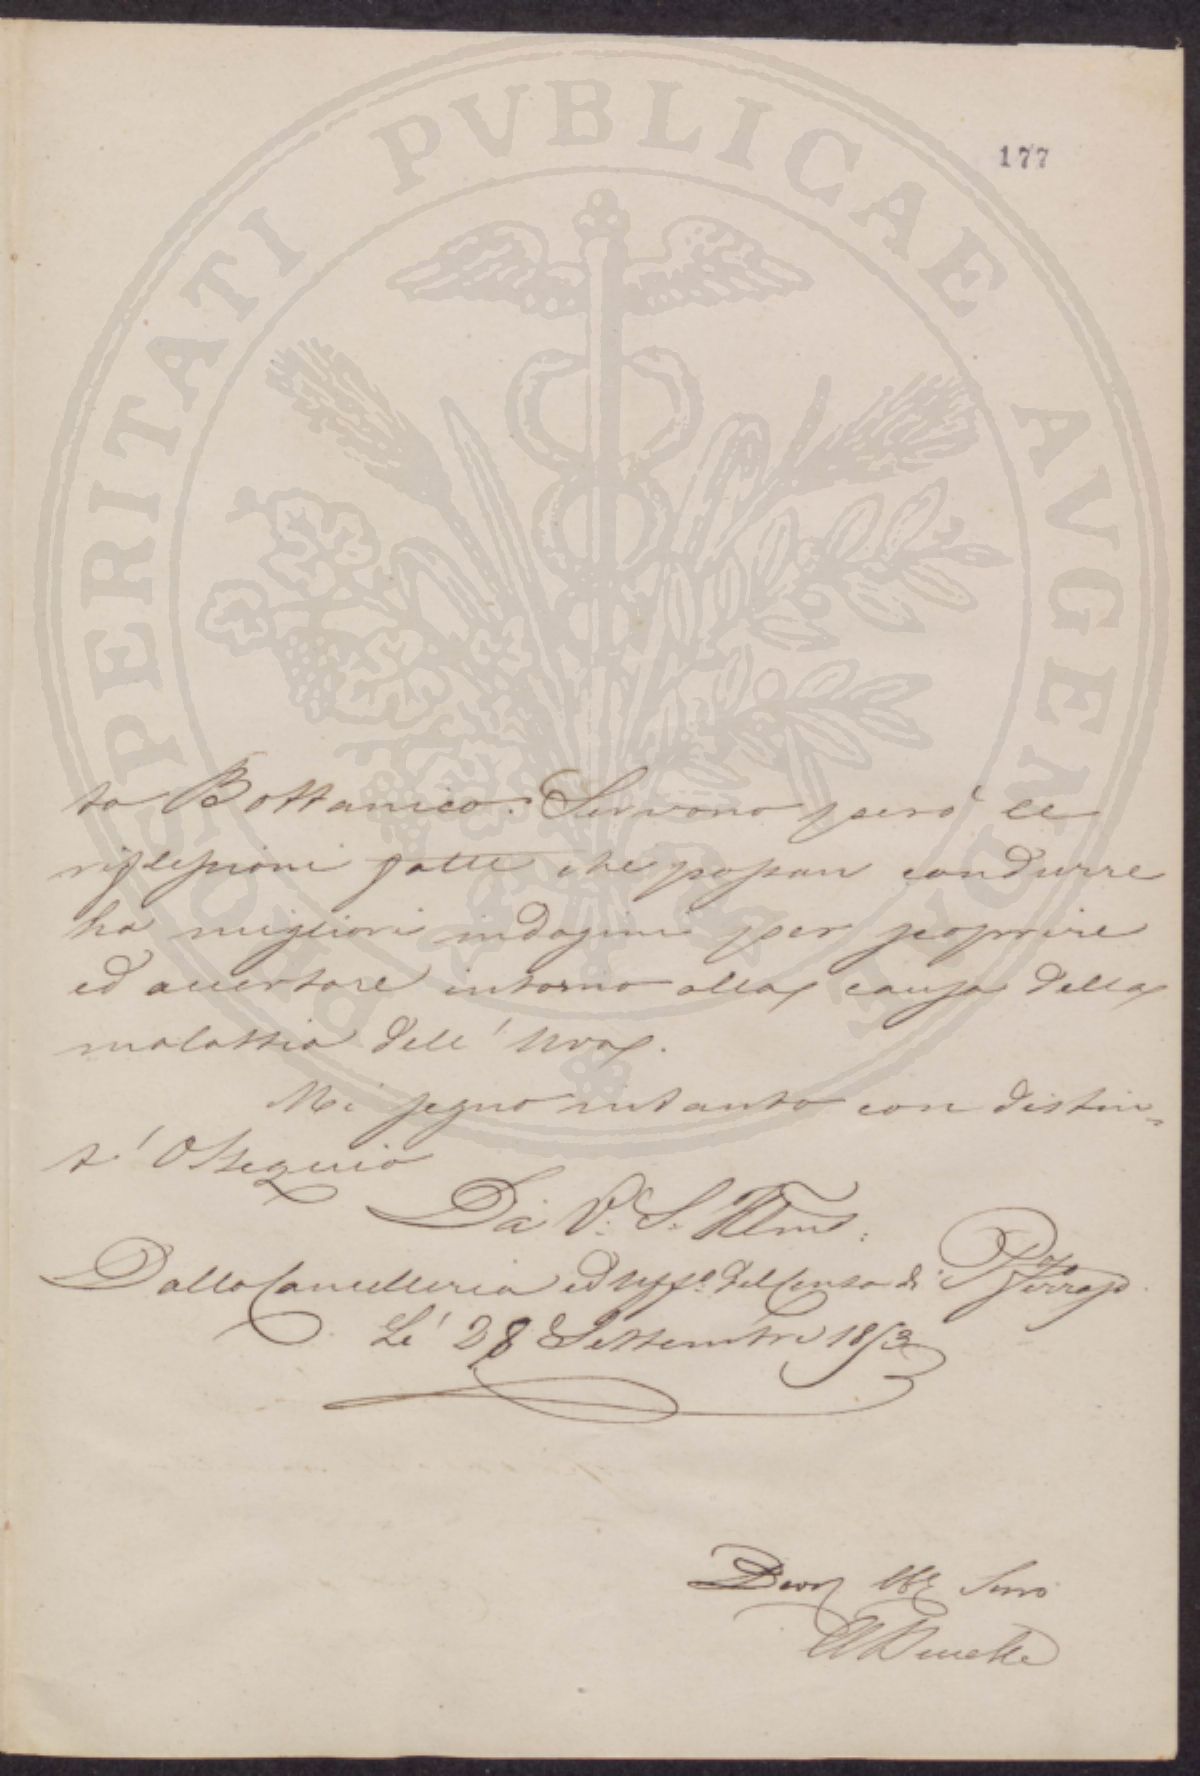 177
PROSPERITATI PVBLICAE AVGENDAE
to Bottanico. Servono però le
riflessioni fatte che possan condurre
ha migliori indagini per scoprire
ed accertare intorno alla causa della
malattia dell' Uva.
Mi segno intanto con distin-
t' Ossequio
Da V. S. Illma.
Dalla Cancelleria ed Uffo. del Censo di
Li' 28 Settembre 1853
Devo Obb Servo